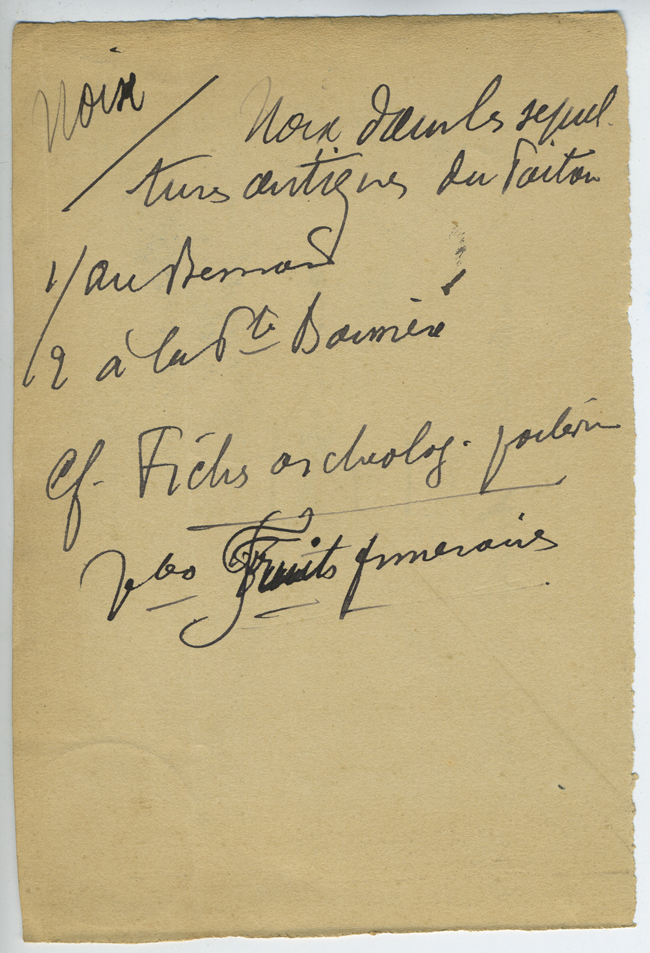 Noix / Noix dans les sepul-
tures antiques du Poitou
1/ au Bernard
2 à la Pte Boissière
Cf. Fiches archeolog. poitevin
Vbo Fruits funeraires